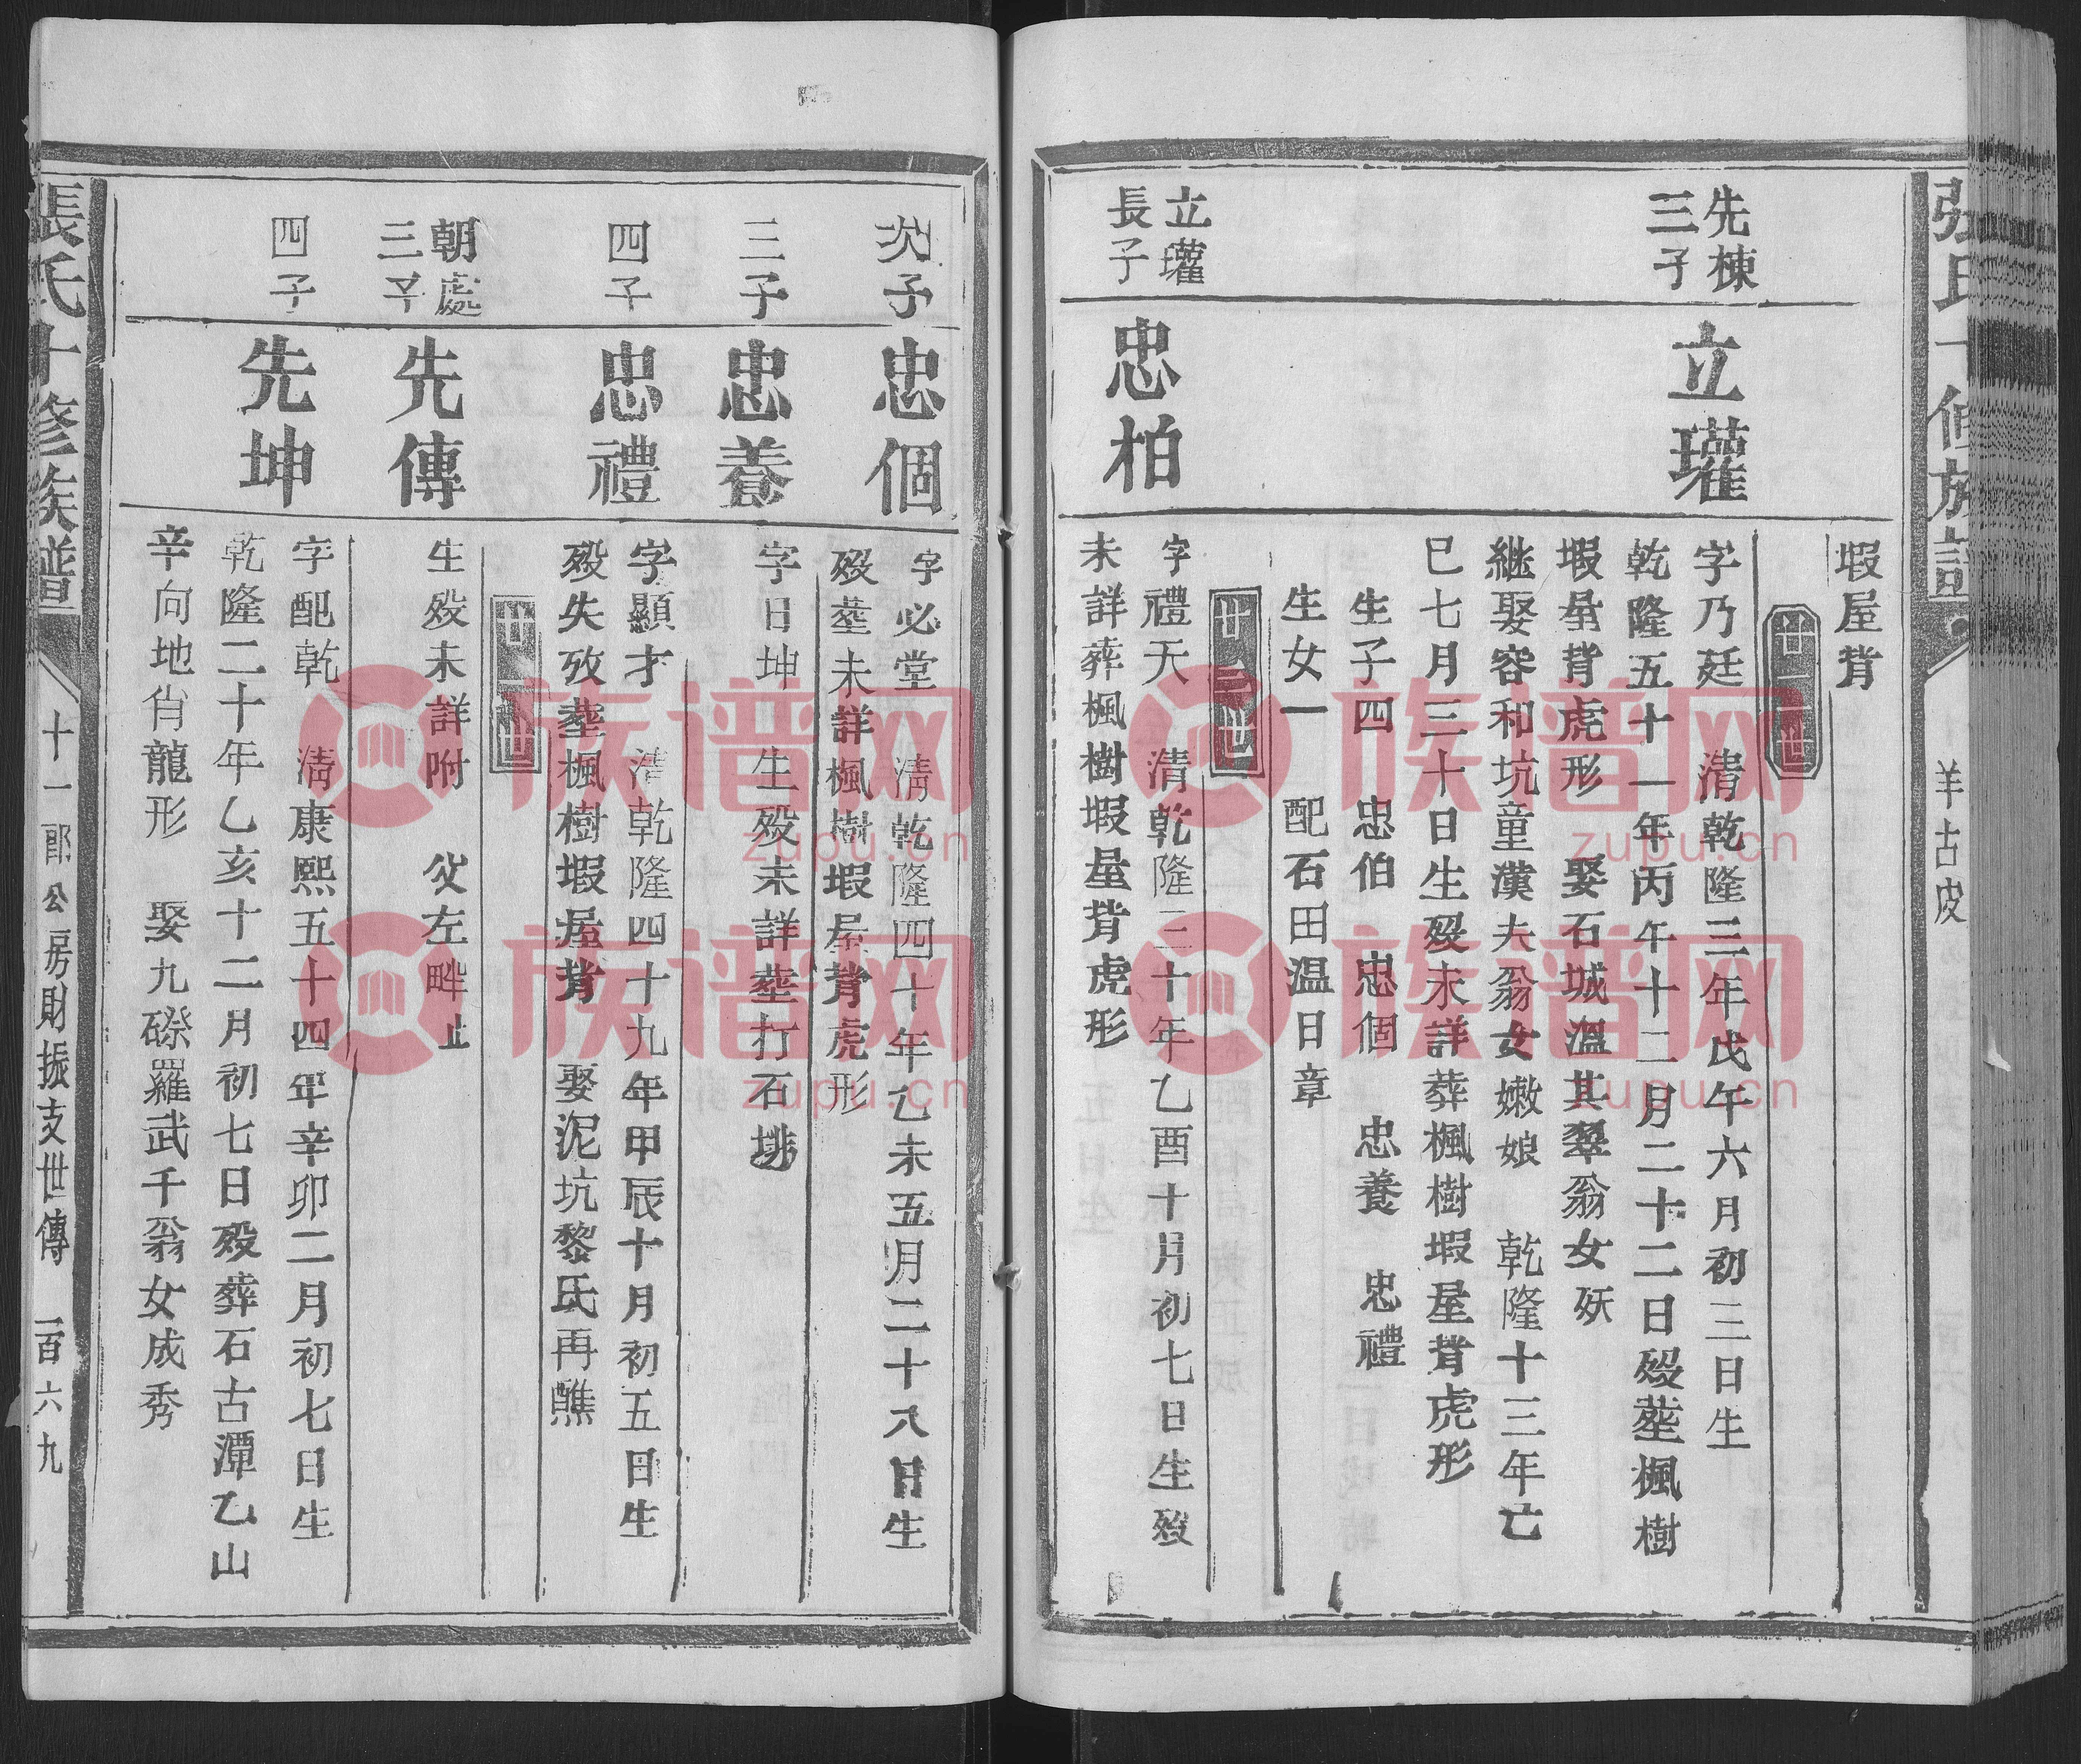 張氏十修族譜
羊古皮
塅屋背
廿二世
先棟
三子
立瓘
字乃廷 清乾隆三年戊午六月初三日生
乾隆五十一年丙午十二月二十二日歿塟楓樹
塅屋背虎形 娶石城溫其翠翁女妖
継娶容和坑童漢夫翁女嫩娘 乾隆十三年亡
巳七月三十日生歿未詳葬楓樹塅屋背虎形
生子四 忠伯 忠個 忠養 忠禮
生女一 配石田温日章
廿三世
立瓘
長子
忠柏
字禮天 清乾隆三十年乙酉十月初七日生歿
未詳葬楓樹塅屋背虎形
次子
忠個
字必堂 清乾隆四十年乙未五月二十八日生
歿塟未詳楓樹塅屋背虎形
三子
忠養
字日坤 生歿未詳塟打石㘭
四子
忠禮
字顯才 清乾隆四十九年甲辰十月初五日生
歿失攷塟楓樹塅屋背 娶泥坑黎氏再醮
廿一世
朝處
三子
先傳
生歿未詳附 父左畔止
四子
先坤
字配乾 清康熙五十四年辛卯二月初七日生
乾隆二十年乙亥十二月初七日歿葬石古潭乙山
辛向地肖龍形 娶九磜羅武千翁女成秀
張氏十修族譜
十一郎公房財振支世傳 一百六九
族谱网
zupu.cn
族谱网
zupu.cn
族谱网
zupu.cn
族谱网
zupu.cn